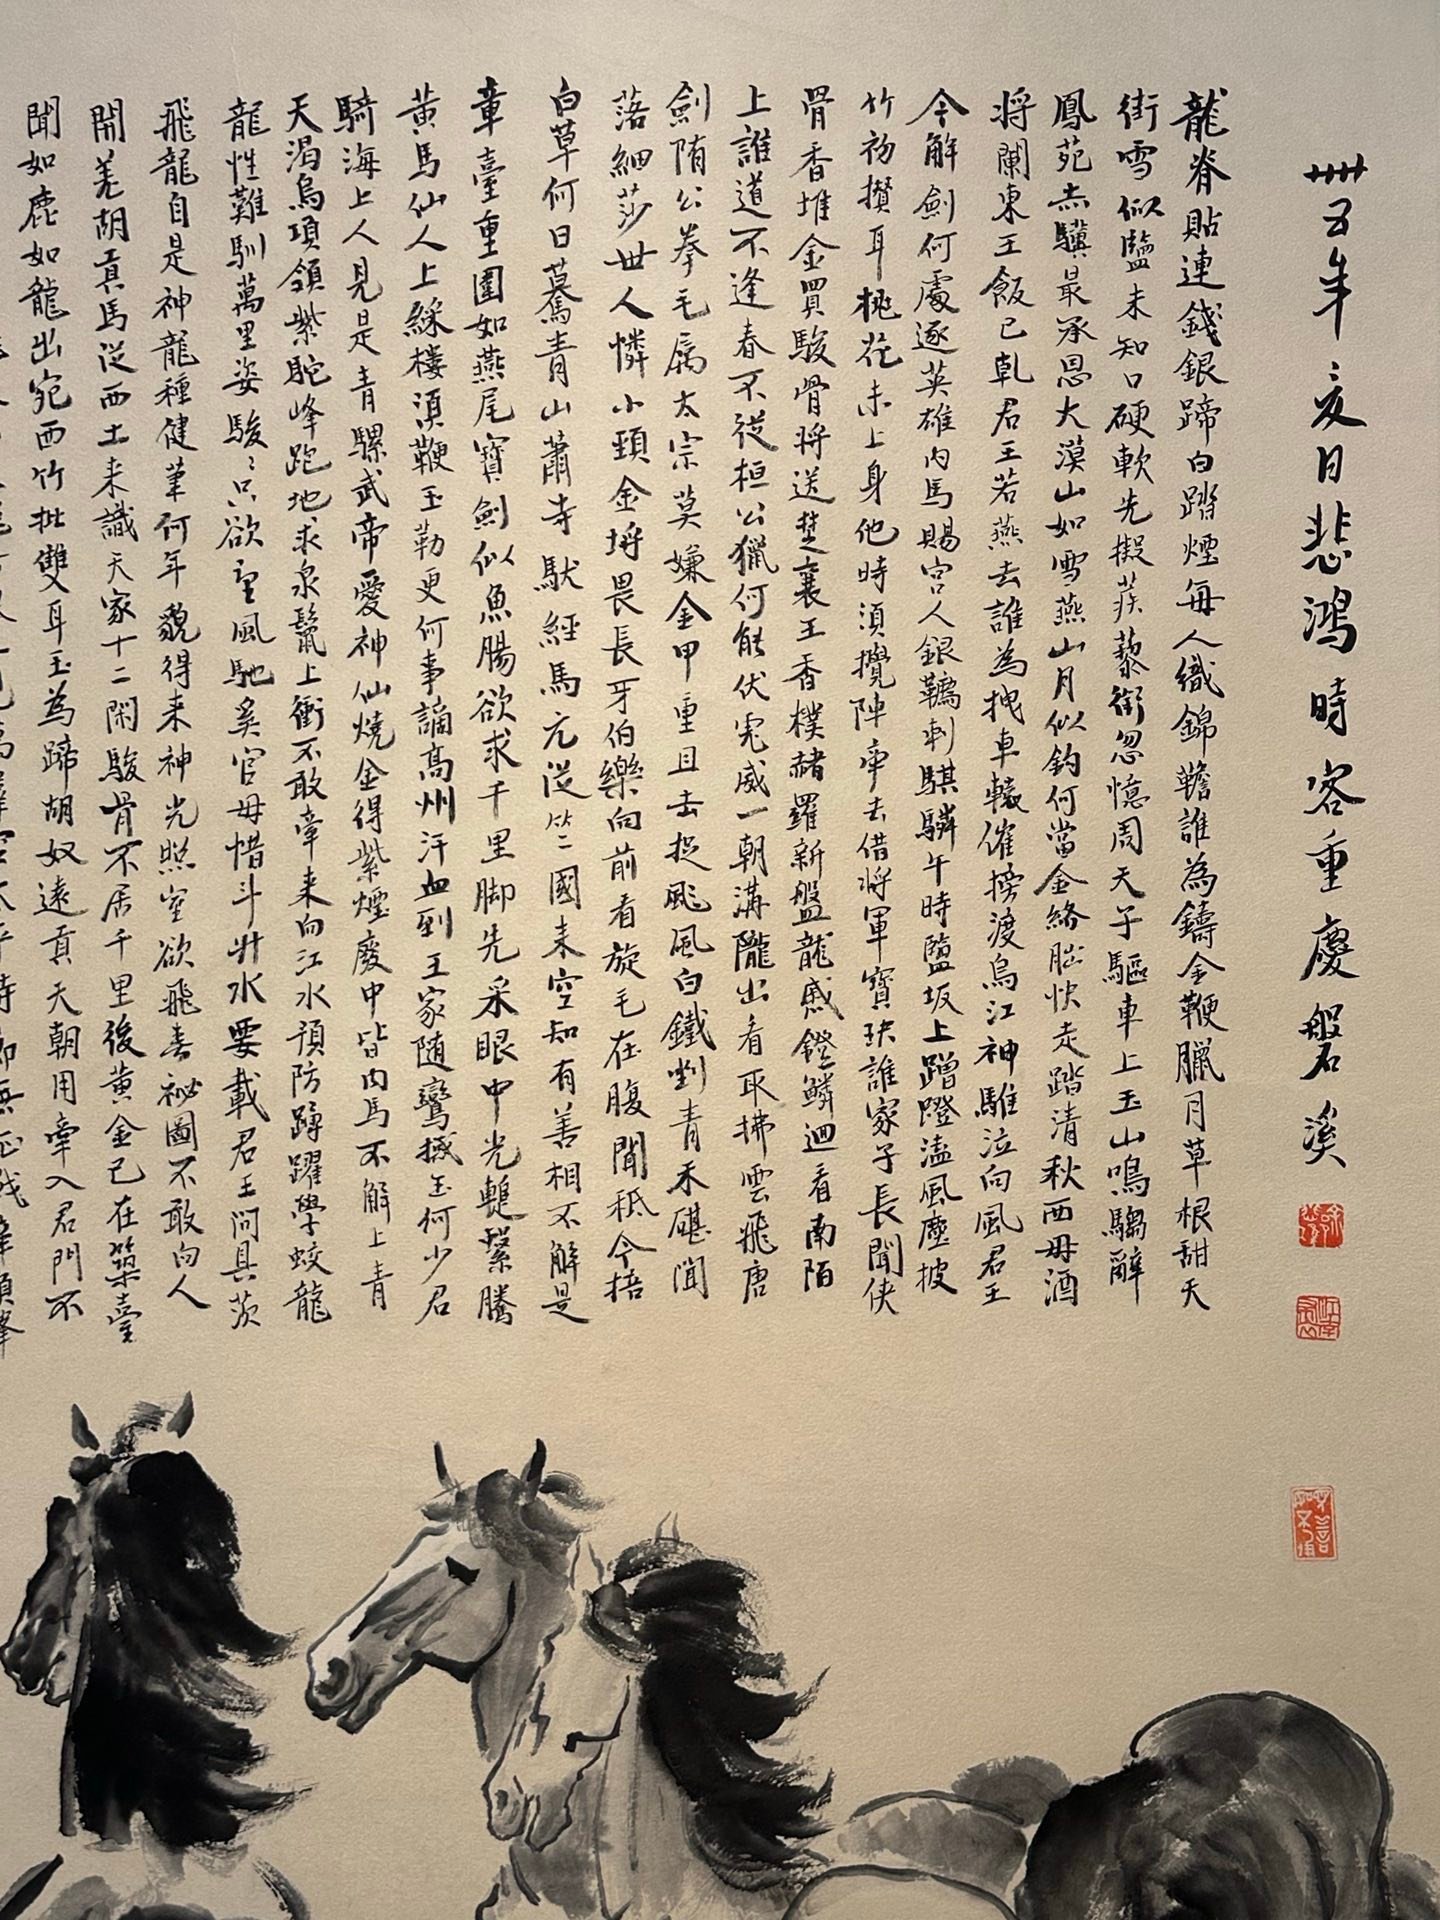 卅五年亥月悲鴻時客重慶磐溪
龍脊貼連錢銀蹄白踏煙每人織錦韂誰為鑄金鞭臘月草根甜天
街雪似鹽未知口硬軟先擬蒺藜銜忽憶周天子驅車上玉山鳴騶辭
鳳苑赤驥最承恩大漠山如雪燕山月似鈎何當金絡腦快走踏清秋西毋酒
將闌東王飯已乹君王若燕去誰為拽車轅催搒渡烏江神騅泣向風君王
今解劍何處逐英雄內馬賜宮人銀韉刺騏驎午時鹽坂上蹭蹬溘風塵披
竹初攢耳桃花未上身他時須攪陣牽去借將軍寶玦誰家子長聞俠
骨香堆金買駿骨將送楚襄王香襆赭羅新盤龍蹙鐙鱗迴看南陌
上誰道不逢春不從桓公獵何能伏虎威一朝溝隴出看取拂雲飛唐
劍隋公拳毛屬太宗莫嫌金甲重且去捉飈風白鐵剉青禾碪聞
落細莎世人憐小頸金埒畏長牙伯樂向前看旋毛在腹間秪今掊
白草何日驀青山蕭寺馱經馬元從竺國來空知有善相不解是
章臺重圍如燕尾寶劍似魚腸欲求千里脚先采眼中光繫騰
黃馬仙人上綵樓須鞭玉勒更何事謫高州汗血到王家隨鸞撼玉何少君
騎海上人見是青騾武帝愛神仙燒金得紫煙廄中皆肉馬不解上青
天渴烏項領紫駝峰跑地求泉鬣上衝不敢牽來向江水預防蹲躍學蛟龍
龍性難馴萬里姿駿〻只欲望風馳奚官毋惜斗升水要載君王問具茨
飛龍自是神龍種健筆何年貌得來神光照室欲飛去祕圖不敢向人
開羌胡真馬從西土來識天家十二閑駿骨不居千里後黃金已在築臺
聞如鹿如龍出宛西竹批雙耳玉為蹄胡奴遠貢天朝用牽入君門不